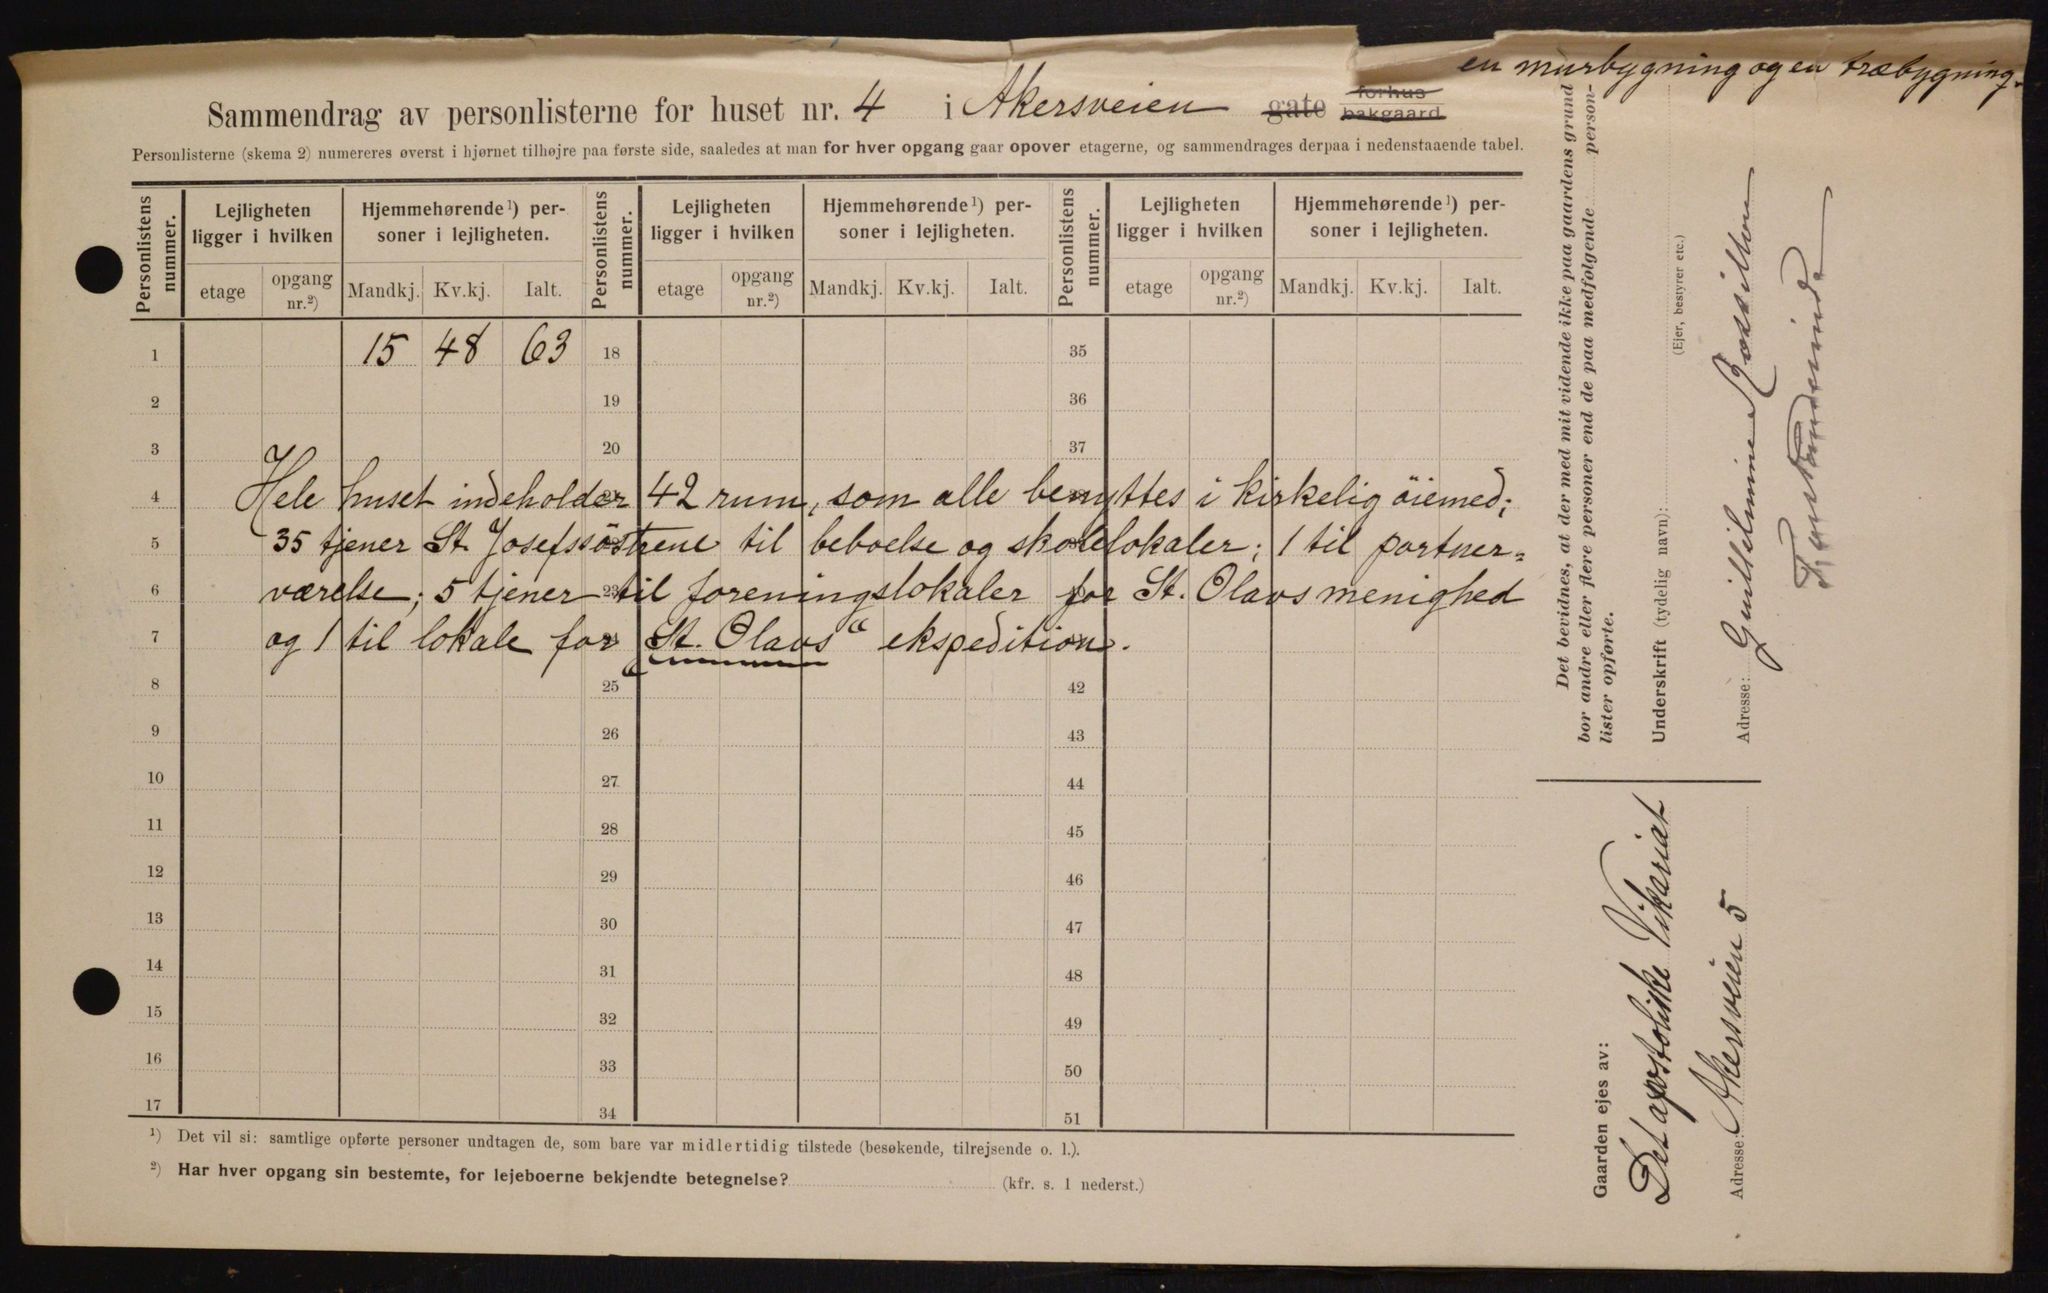 en murbygning og en træbygning.
Sammendrag av personlisterne for huset nr. 4 i Akersveien gate forhus bakgaard
Personlisterne (skema 2) numereres øverst i hjørnet tilhøjre paa første side, saaledes at man for hver opgang gaar opover etagerne, og sammendrages derpaa i nedenstaaende tabel.
Personlistens nummer. Lejligheten ligger i hvilken Hjemmehørende¹) personer i lejligheten. Personlistens nummer. Lejligheten ligger i hvilken Hjemmehørende¹) personer i lejligheten. Personlistens nummer. Lejligheten ligger i hvilken Hjemmehørende¹) personer i lejligheten.
etage opgang nr.²) Mandkj. Kv.kj. Ialt. etage opgang nr.²) Mandkj. Kv.kj. Ialt. etage opgang nr.²) Mandkj. Kv.kj. Ialt.
1 15 48 63 18 35
2 19 36
3 20 37
4 Hele huset indeholder 42 rum, som alle benyttes i kirkelig öiemed;
5 35 tjener St. Josefssöstrene til beboelse og skolelokaler; 1 til portner=
6 værelse; 5 tjener 23 til foreningslokaler for St. Olavs menighed
7 og 1 til lokale for „St. Olavs“ ekspedition.
8 25 42
9 26 43
10 27 44
11 28 45
12 29 46
13 30 47
14 31 48
15 32 49
16 33 50
17 34 51
¹) Det vil si: samtlige opførte personer undtagen de, som bare var midlertidig tilstede (besøkende, tilrejsende o. l.).
²) Har hver opgang sin bestemte, for lejeboerne bekjendte betegnelse? (kfr. s. 1 nederst.)
Det bevidnes, at der med mit vidende ikke paa gaardens grund
bor andre eller flere personer end de paa medfølgende person-
lister opførte.
Underskrift (tydelig navn):
(Ejer, bestyrer etc.)
Guilhelmine Rossillon
Adresse:
Forstanderinde
Gaarden ejes av:
Det apostoliske Vikariat
Adresse: Akersveien 5